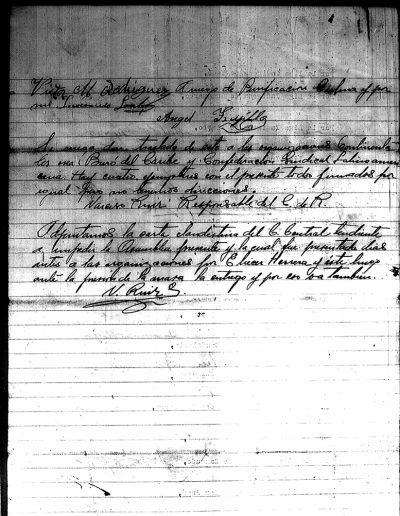 Victor M Rodriguez Amigo de Purificacion Molina y por
mi Inocencio
Angel Trujillo
Se ruega dar traslado de esto a las organizaciones Continenta-
les sea Buró del Caribe y Confederacion Sindical Latino ameri-
cana Hay cuatro ejemplares con el presente todo firmados por
igual Pero no envio direcciones.
Ruiz Responsable del C. de R.
Adjuntamos la carta clandestina del C Central tendiente
a impedir la Asamblea presente y la cual fue presentada dias
antes a las organizaciones por Eliecer Herrera y éste luego
ante la presion de la masa la entrego y por eso va tambien.
V. Ruiz